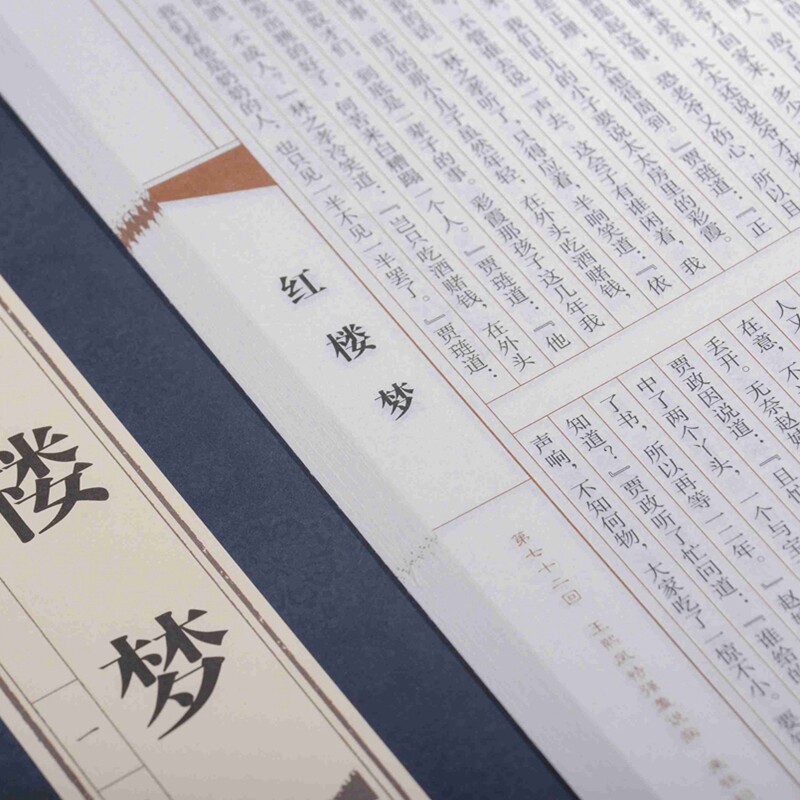 老爷才回家来，多少
太太还说老爷才来
提起这事，恐老爷又伤心，所以且
是正理，太太想得周到。』贾琏道：『正
我们旺儿的小子要说太太房里的彩霞。
不管谁去说一声去。这会子有谁闲着，我
我的话。』林之孝听了，只得应着，半晌笑道：『依
旺儿的那小儿子虽然年轻，在外头吃酒赌钱，
是奴才们，到底是一辈子的事。彩霞那孩子这几年我
发出挑的好了，何苦来白糟蹋一个人。』贾琏道：『他
酒，不成人？』林之孝冷笑道：『岂只吃酒赌钱，在外头
我们看他是奶奶的人，也只见一半不见一半罢了。』贾琏道：
人，又
在意，不
丢开。无奈赵姨
贾政因说道：『且忙
中了两个丫头，一个与宝
了书，所以再等一二年。』赵姨
知道？』贾政听了忙问道：『谁给的
声响，不知何物，大家吃了一惊不小。要
红楼梦
第七十二回 王熙凤恃强羞说病 来旺
楼梦
一